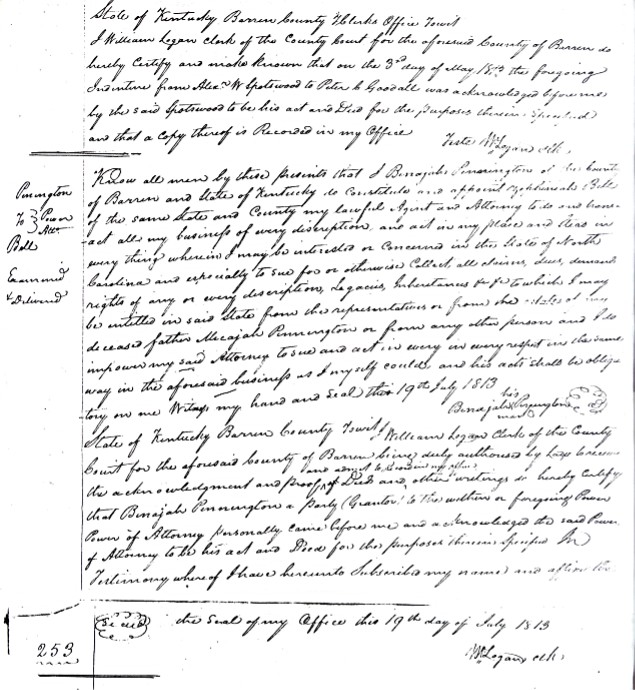 State of Kentucky Barren County & Clerks Office Towit
I William Logan clerk of the County Court for the aforesaid County of Barren do
hereby Certify and make known that on the 3rd day of May 1813 the foregoing
Indenture from Alexr W Spotswood to Peter C Goodall was acknowledged before me
by the said Spotswood to be his act and Deed for the purposes therein Specified
and that a Copy thereof is Recorded in my Office
Teste Wm Logan clk.
Pennington
To } Power
Atto.
Bell
Examined
& Delivered
Know all men by these presents that I Benajah Pennington of the County
of Barren and State of Kentucky do Constitute and appoint Bell
of the same State and County my lawful Agent and Attorney to do and trans-
act all my business of every description, and act in my place and stead in
every thing wherein I may be interested or Concerned in the State of North
Carolina and especially to sue for or otherwise Collect, all claims, dues, demands
rights of any or every description, Legacies, Inheritances &c &c to which I may
be entitled in said State from the representatives or from the estate of my
deceased father Mecajah Pennington or from any other person and I do
impower my said Attorney to sue and act in every in every respect in the same
way in the aforesaid business as I myself could, and his acts shall be obliga-
tory on me Witness my hand and Seal this 19th July 1813
his
Benajah Pennington
mark
State of Kentucky Barren County Towit I William Logan Clerk of the County
Court for the aforesaid County of Barren being duly authorised by Law to receive
and admit to record in my office
the acknowledgment and proof of Deeds and other writings do hereby Certify
that Benajah Pennington a party (Grantor) to the within or foregoing Power
Power of Attorney personally came before me and acknowledged the said Power
of Attorney to be his act and Deed for the purposes therein Specified In
Testimony where of I have hereunto Subscribed my name and affixed the
Seal the Seal of my Office this 19th day of July 1813
253
Wm Logan clk.